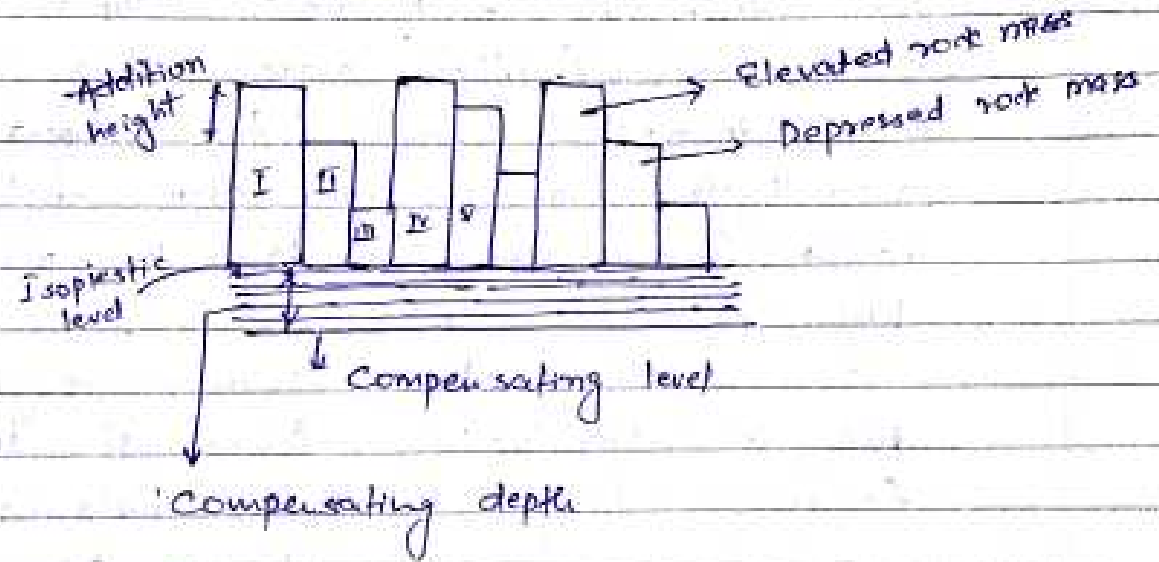 Addition
height
Elevated rock mass
Depressed rock mass
I
II
III
IV
V
Isopiestic
level
Compensating level
Compensating depth